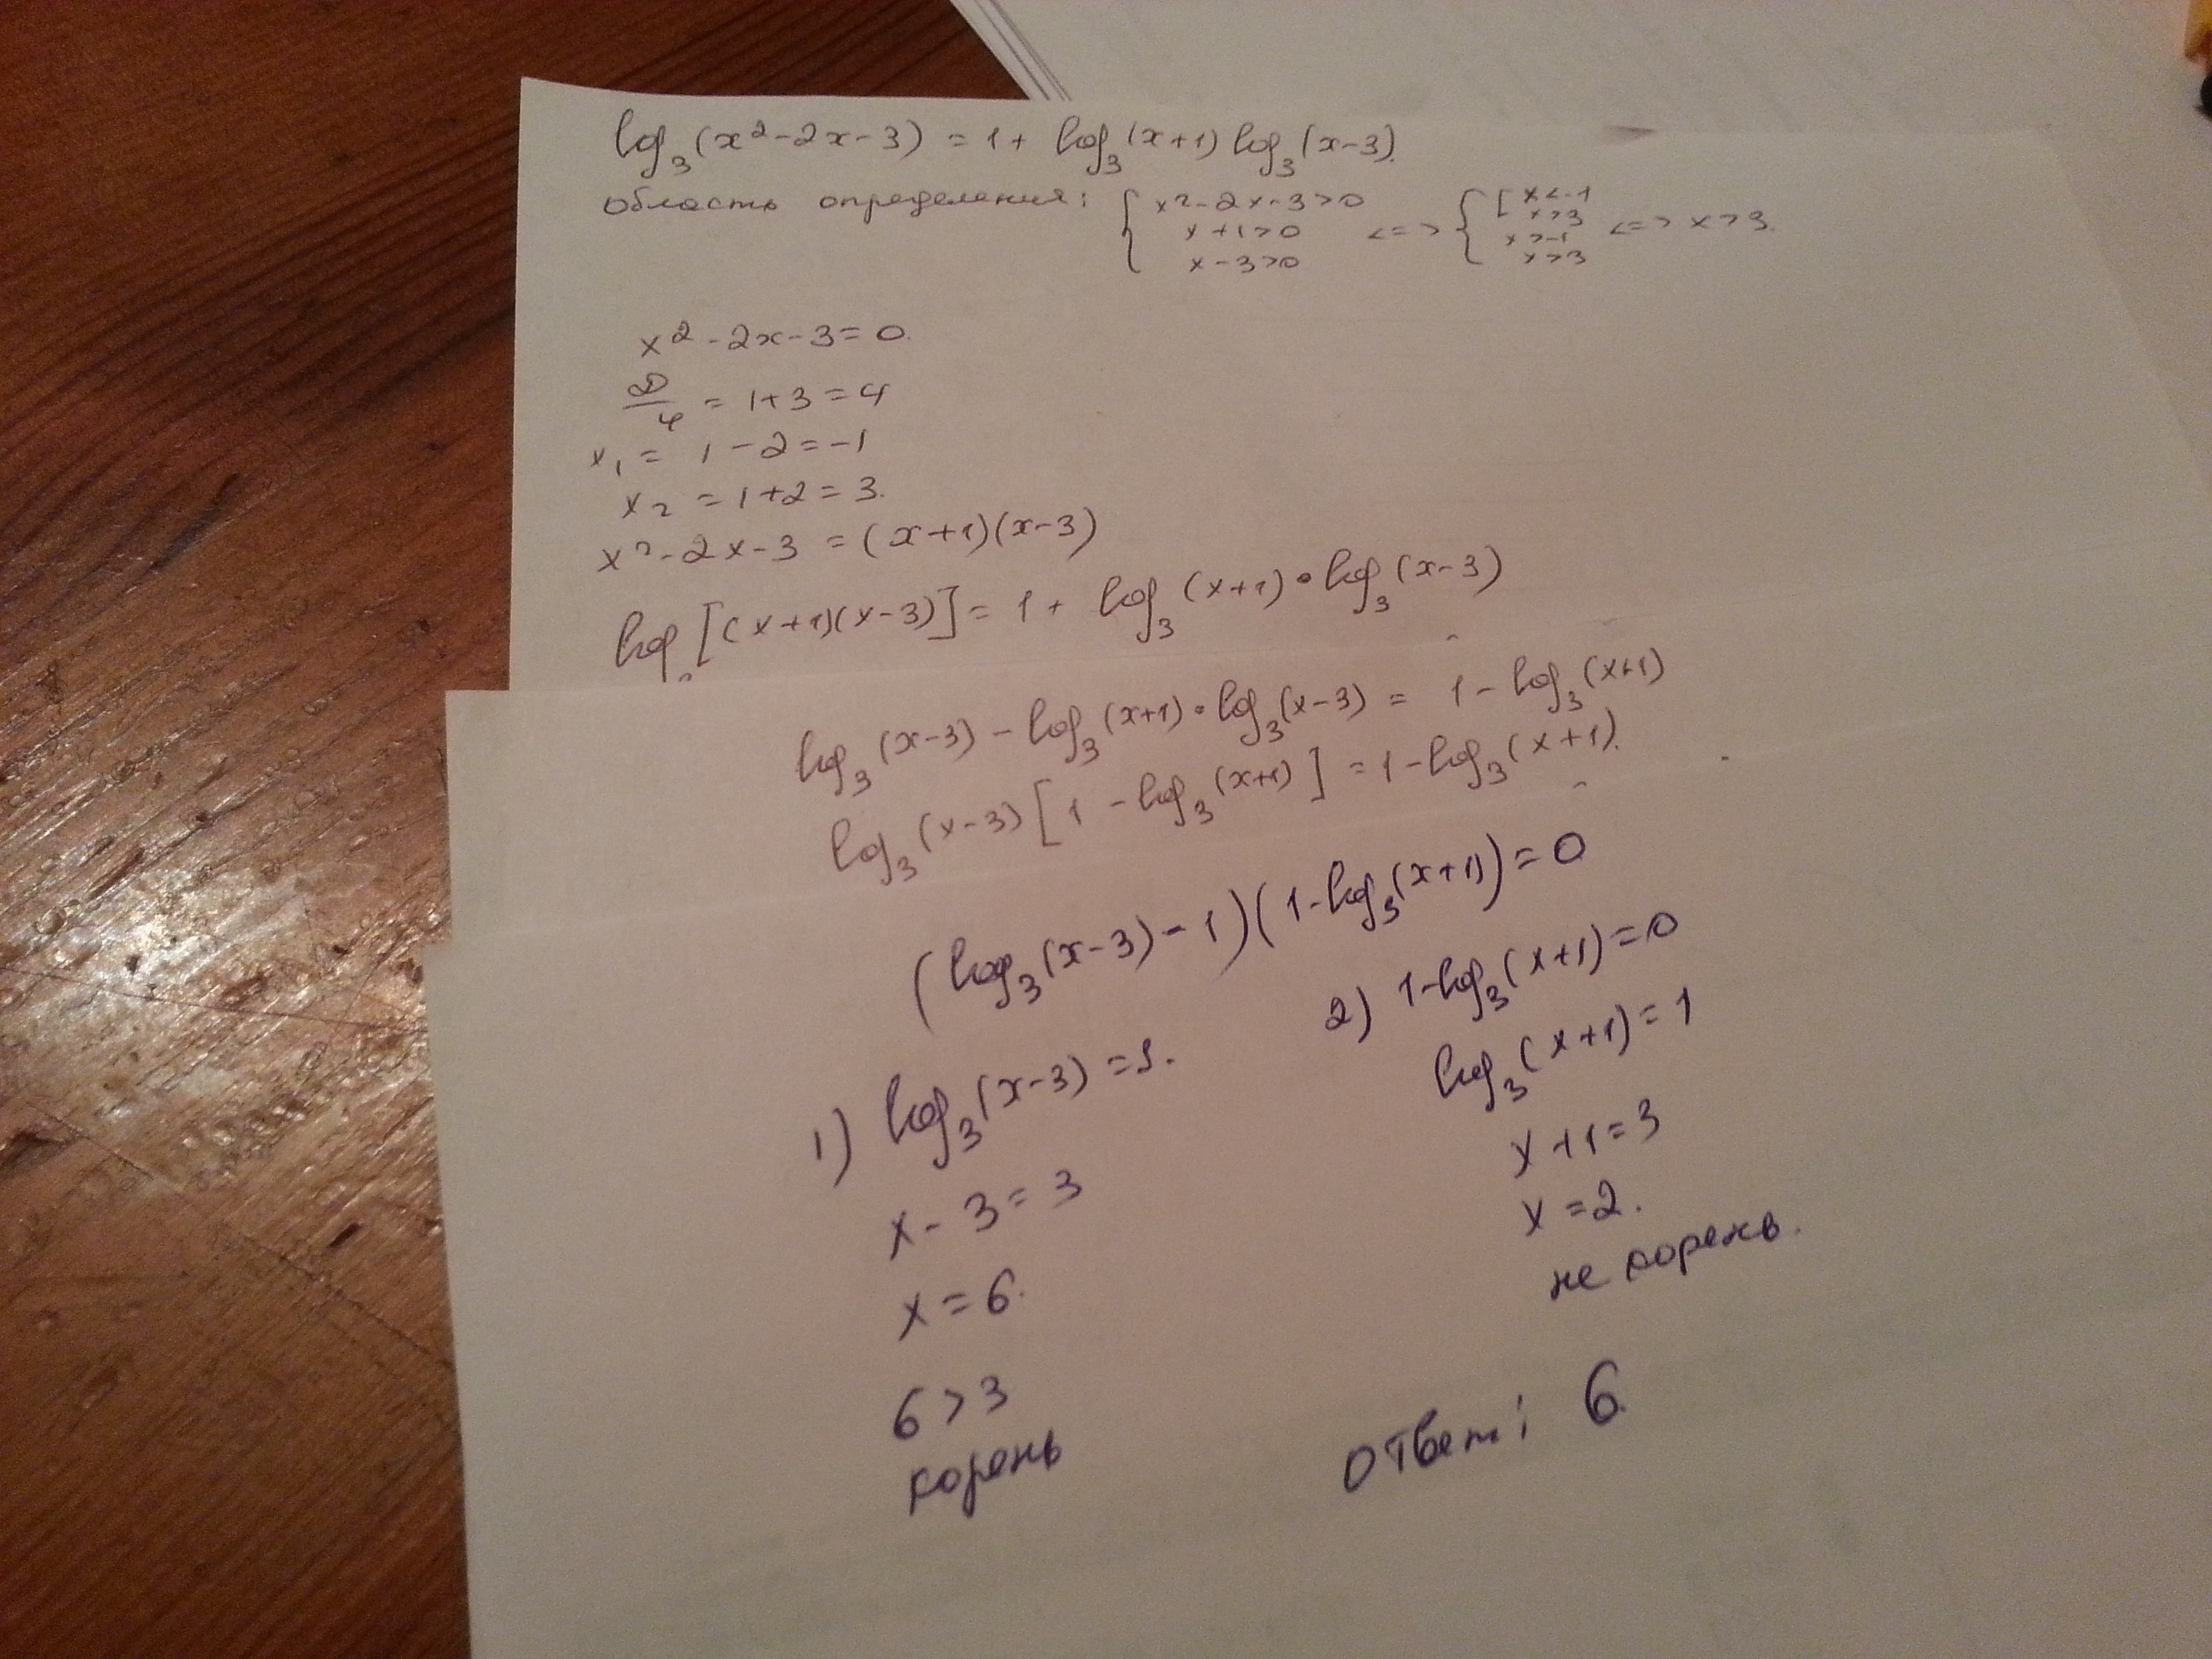 log₃(x²-2x-3) = 1 + log₃(x+1) log₃(x-3).
область определения: { x²-2x-3>0 x+1>0 x-3>0 <=> { [ x<-1 x>3 x>-1 x>3 <=> x>3.
x²-2x-3=0.
D/4 = 1+3=4
x₁ = 1-2=-1
x₂ = 1+2=3.
x²-2x-3 = (x+1)(x-3)
log₃[(x+1)(x-3)] = 1 + log₃(x+1)•log₃(x-3)
log₃(x-3) - log₃(x+1)•log₃(x-3) = 1 - log₃(x+1)
log₃(x-3)[1-log₃(x+1)] = 1-log₃(x+1).
(log₃(x-3)-1)(1-log₃(x+1))=0
1) log₃(x-3)=1.
x-3=3
x=6.
6>3
корень
2) 1-log₃(x+1)=0
log₃(x+1)=1
x+1=3
x=2.
не корень.
Ответ: 6.